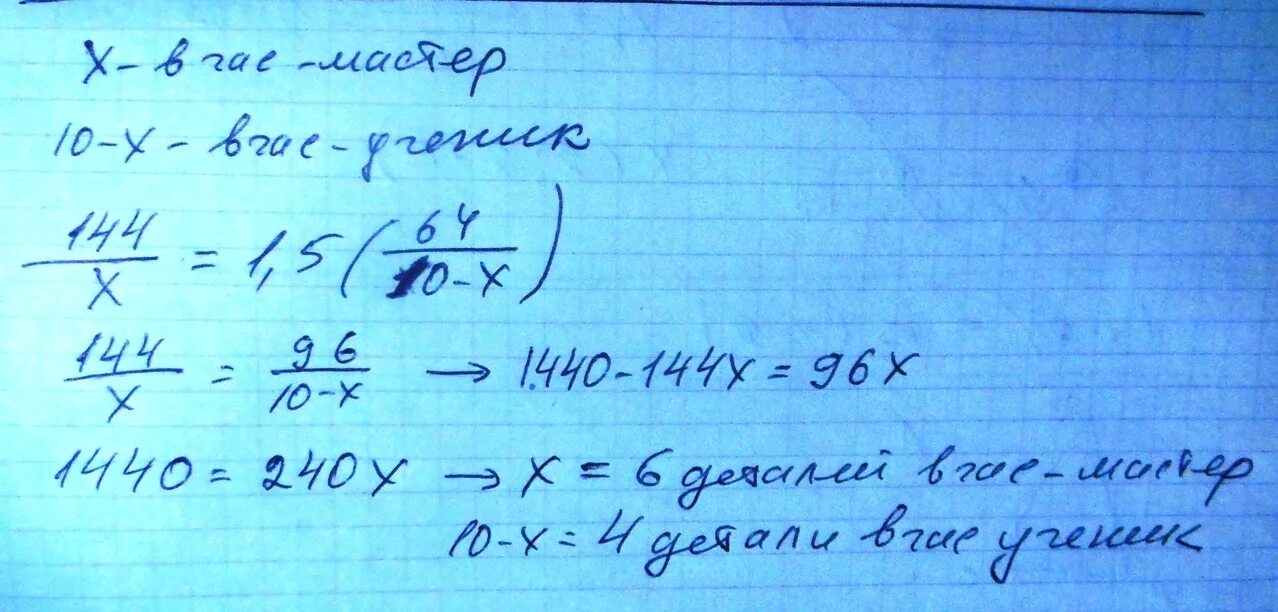 х - в час - мастер
10-х - в час - ученик
144/х = 1,5(64/10-х)
144/х = 96/10-х → 1440-144х = 96х
1440 = 240х → х = 6 деталей в час - мастер
10-х = 4 детали в час ученик